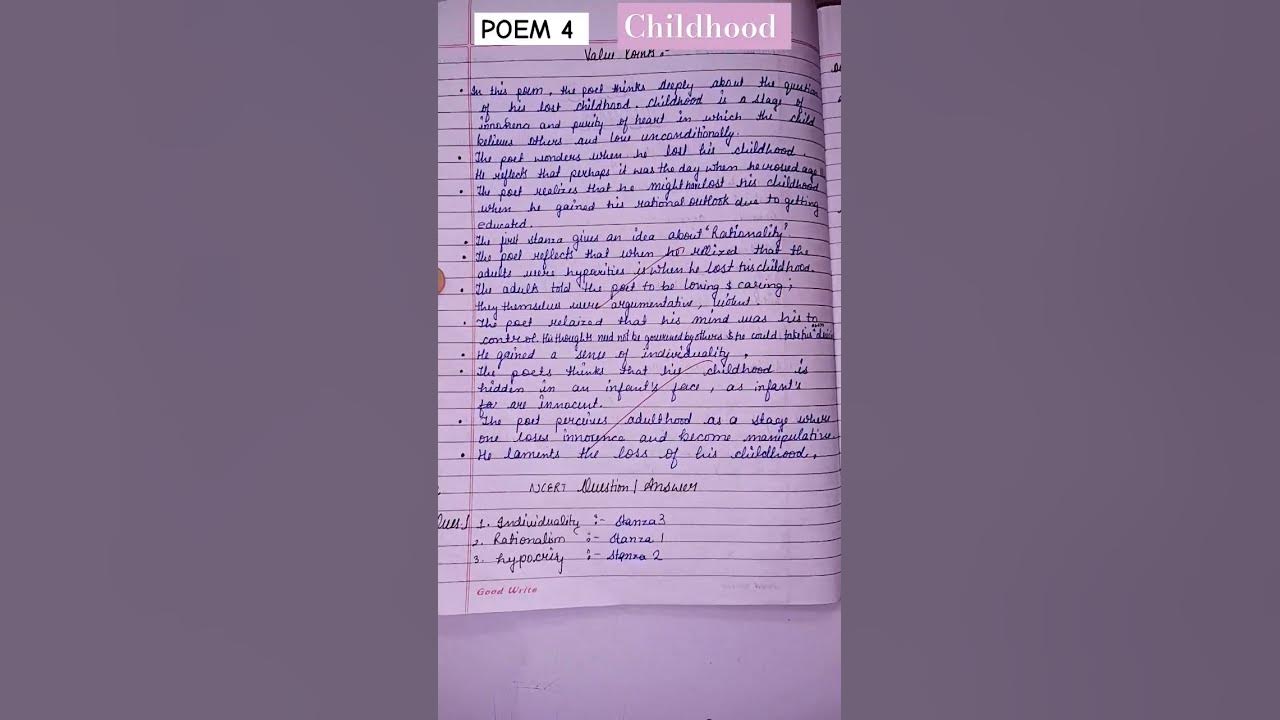 POEM 4 Childhood
Value Points :-
• In this poem, the poet thinks deeply about the question
of his lost childhood. Childhood is a stage of
and purity of heart in which the child
believes others and love unconditionally.
• The poet wonders when he lost his childhood.
He reflects that perhaps it was the day when he crossed age 11
• The poet realizes that he might have lost his childhood
when he gained his rational outlook due to getting
educated.
• The first stanza gives an idea about "Rationality"
• The poet reflects that when he relized that the
adults were hyparities is when he lost his childhood.
• The adults told the poet to be loving & caring;
they themselves were argumentative, violent.
• The poet relaized that his mind was his to
control. His thoughts need not be governed by others & he could take his own
• He gained a sense of individuality.
• The poets thinks that his childhood is
hidden in an infant's face, as infant's
are innocent.
• The poet percives adulthood as a stage where
one loses innocence and become manipulative.
• He laments the loss of his childhood.
NCERT Question/Answer
Ques.1 1. Individuality :- Stanza 3
2. Rationalism :- Stanza 1
3. hypocrisy :- Stanza 2
Good Write